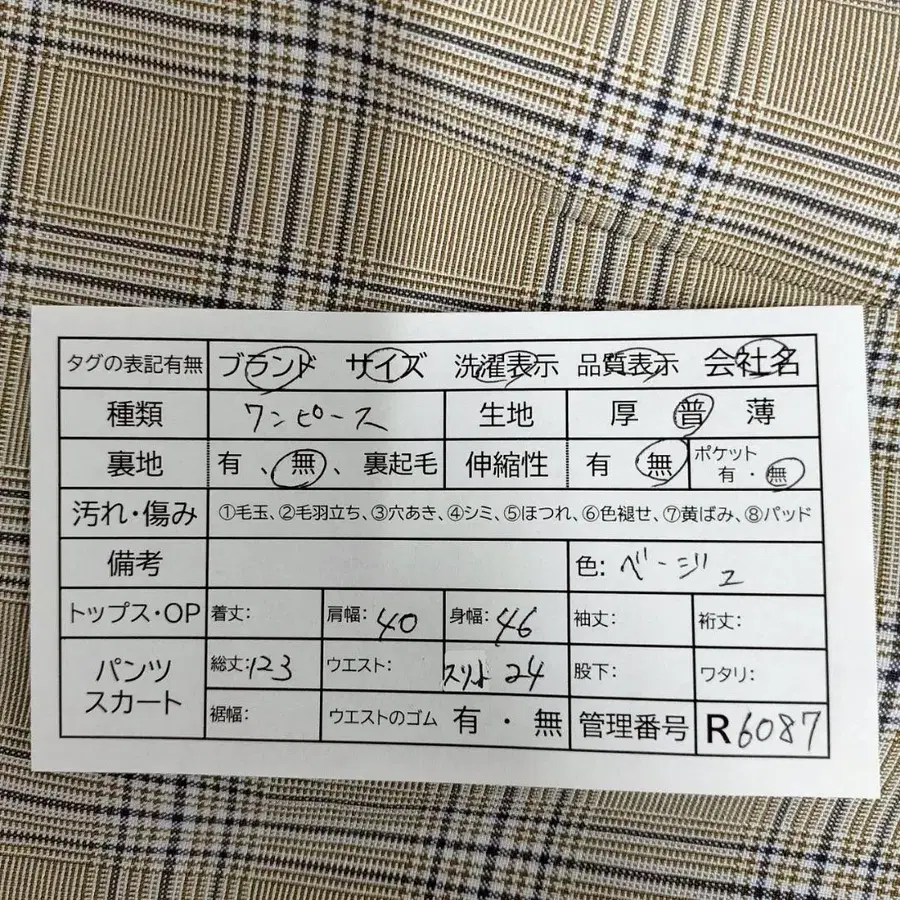 タグの表記有無 ブランド サイズ 洗濯表示 品質表示 会社名
種類 ワンピース 生地 厚 普 薄
裏地 有、無、裏起毛 伸縮性 有 無 ポケット 有・無
汚れ・傷み ①毛玉、②毛羽立ち、③穴あき、④シミ、⑤ほつれ、⑥色褪せ、⑦黄ばみ、⑧パッド
備考 色: ベージュ
トップス・OP 着丈: 肩幅: 40 身幅: 46 袖丈: 裄丈:
パンツ スカート 総丈: 123 ウエスト: スリット 24 股下: ワタリ:
裾幅: ウエストのゴム 有・無 管理番号 R6087